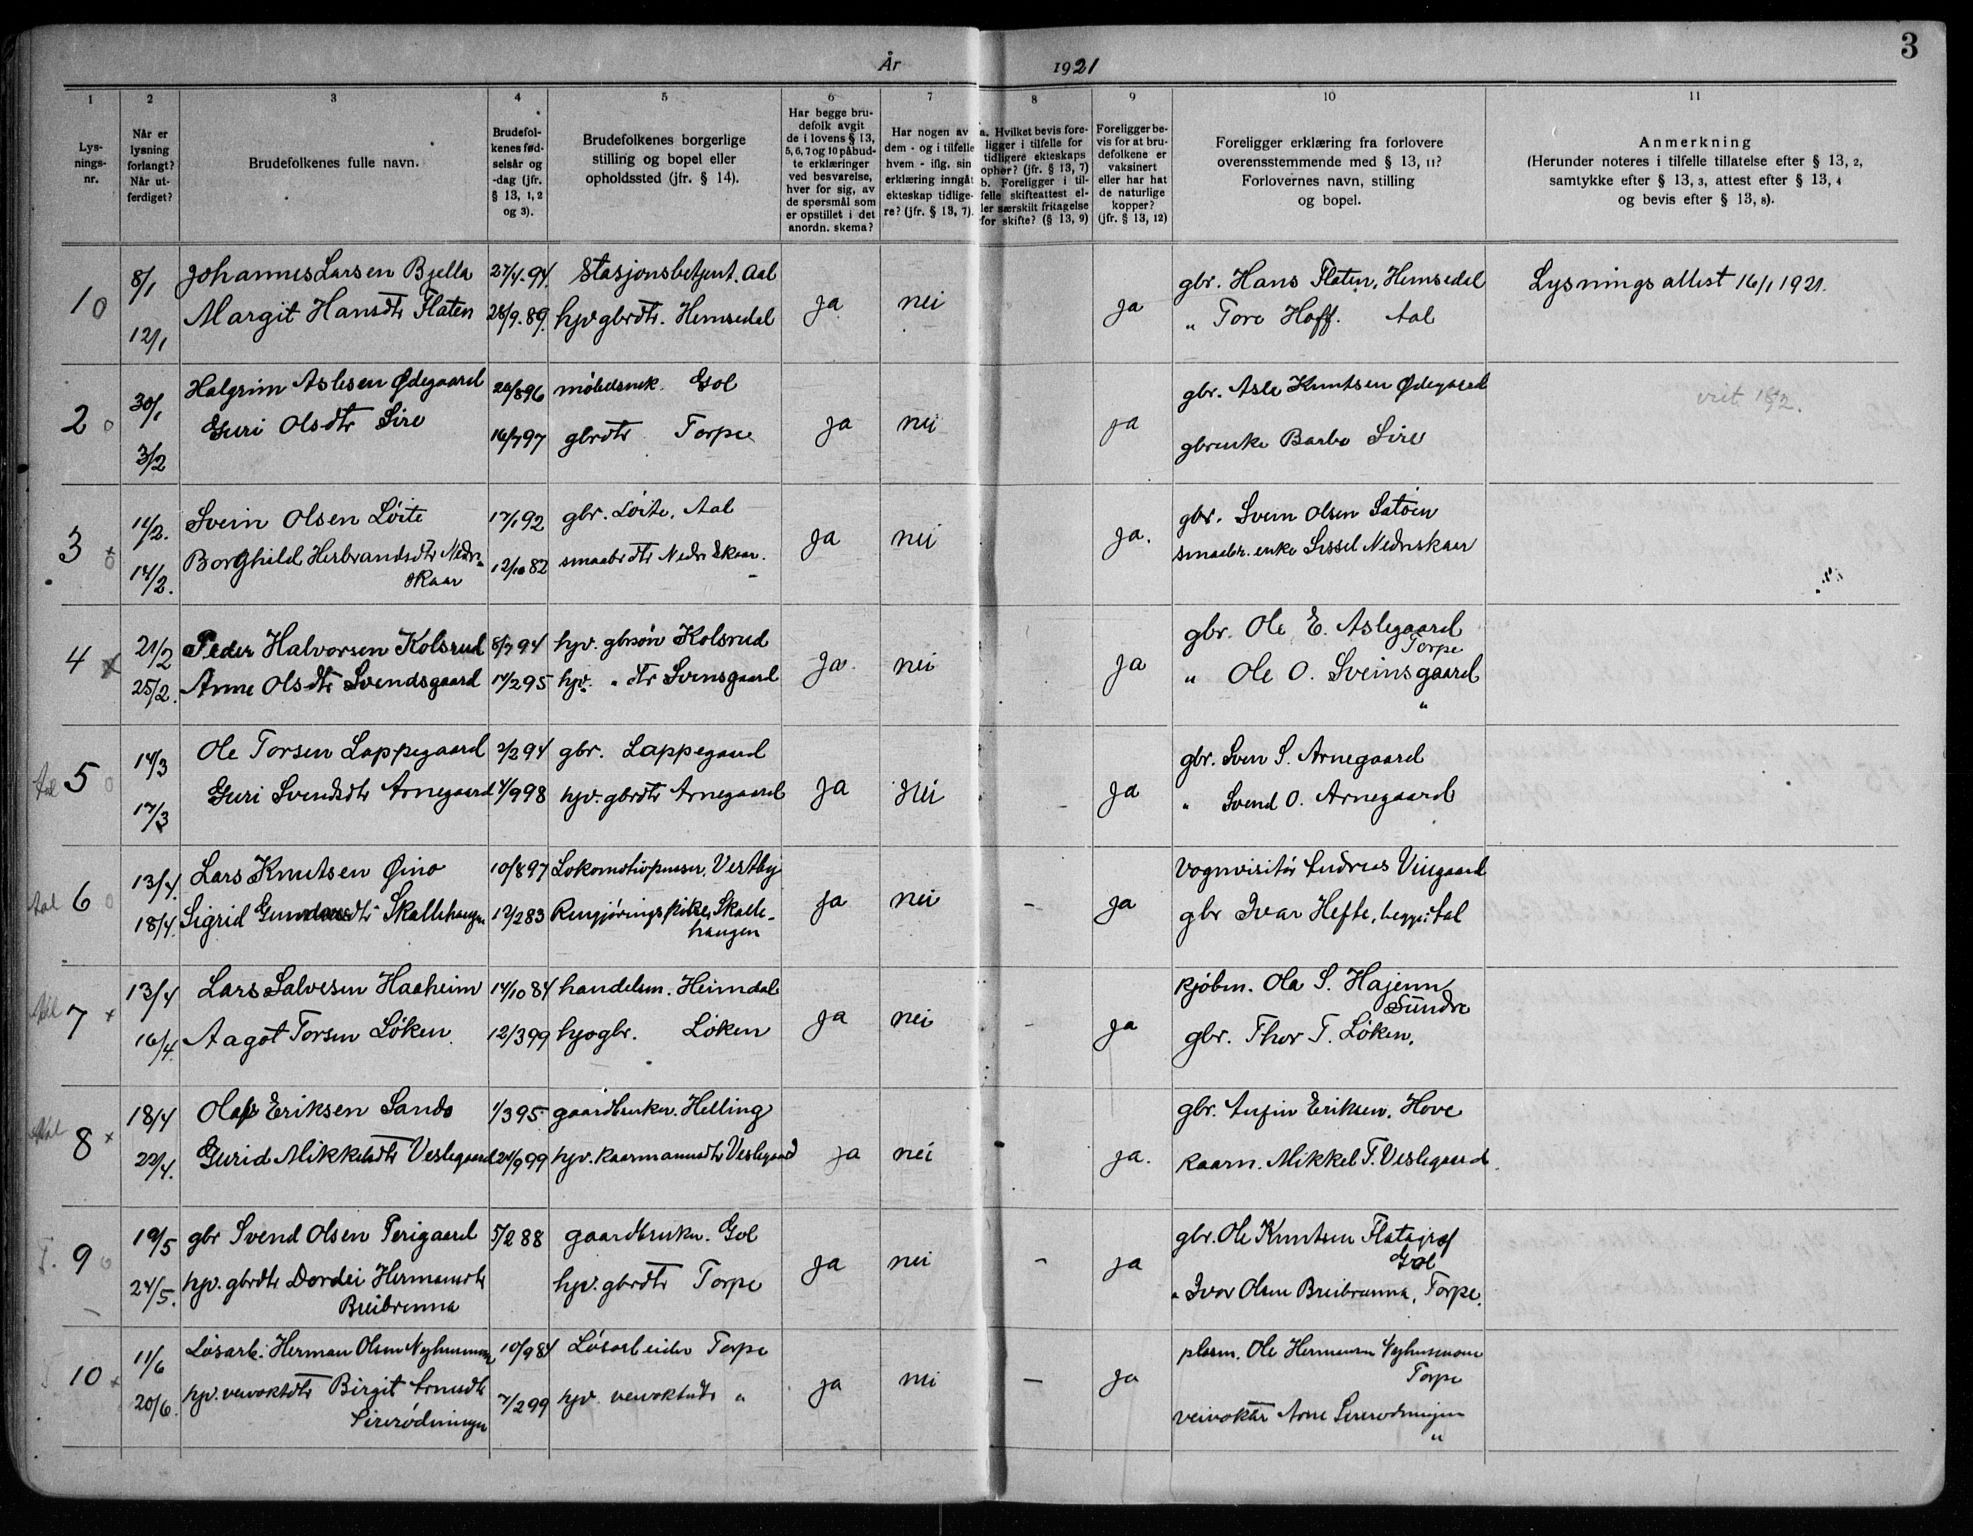 3
År 1921
1 2 3 4 5 6 7 8 9 10 11
Lysningsnr.
Når er lysning forlangt? Når utferdiget?
Brudefolkenes fulle navn.
Brudefolkenes fødselsår og -dag (jfr. § 13, 1, 2 og 3).
Brudefolkenes borgerlige stilling og bopel eller opholdssted (jfr. § 14).
Har begge brudefolk avgit de i lovens § 13, 5, 6, 7 og 10 påbudte erklæringer ved besvarelse, hver for sig, av de spørsmål som er opstillet i det anordn. skema?
Har nogen av dem - og i tilfelle hvem - iflg. sin erklæring inngåt ekteskap tidligere? (jfr. § 13, 7).
a. Hvilket bevis foreligger i tilfelle for tidligere ekteskaps ophør? (jfr. § 13, 7) b. Foreligger i tilfelle skifteattest eller særskilt fritagelse for skifte? (§ 13, 9)
Foreligger bevis for at brudefolkene er vaksinert eller har hat de naturlige kopper? (jfr. § 13, 12)
Foreligger erklæring fra forlovere overensstemmende med § 13, 11? Forlovernes navn, stilling og bopel.
Anmerkning (Herunder noteres i tilfelle tillatelse efter § 13, 2, samtykke efter § 13, 3, attest efter § 13, 4 og bevis efter § 13, 8).
1 o 8/1 Johannes Larsen Bjella 27/4.94. Stasjonsbetjent. Aal ja nei ja gbr. Hans Flaten, Hemsedal Lysningsattest 16/1 1921.
12/1 Margit Hansdtr Flaten 28/9.89. hjv gbrdtr. Hemsedal " Tore Hoff. Aal
2 o 30/1 Halgrim Aslesen Ødegaard 20/896 møbelsnek. Gol ja nei ja gbr. Asle Knutsen Ødegaard
3/2 Guri Olsdtr Sire 16/797 gbrdtr Torpe gbrenke Barbo Sire
3 11/2. Svein Olsen Løite 17/192 gbr. Løite, Aal ja nei ja. gbr. Svein Olsen Satøien
14/2. Borghild Herbrandsdtr Nedre- 12/1082 smaabrdtr Nedreskaar. smaabr. enke Sissel Nedreskaar
skaar
4 x 21/2 Peder Halvorsen Kolsrud 8/794 hjv. gbrsøn Kolsrud ja. nei ja gbr. Ole E. Aslegaard
Torpe
25/2. Anne Olsdtr Svendsgaard 17/295 hjv. " dtr Svensgaard " Ole O. Sveinsgaard
"
Aal 5 o 14/3 Ole Torsen Lappegaard 2/294 gbr. Lappegaard ja nei ja gbr. Sven S. Arnegaard
17/3 Guri Svendsdtr Arnegaard 4/998 hjv. gbrdtr Arnegaard " Svend O. Arnegaard
Aal 6 o 13/4. Lars Knutsen Øino 10/897 Lokomotivpusser, Vestby ja nei - ja Vognvisitør Andreas Viugaard
18/4. Sigrid Skallehaugen 12/283 Rengjøringspike, Skalle- gbr Ivar Hefte, begge: Aal
haugen
Aal 7 x 13/4 Lars Salvesen Haaheim 14/1084 handelsm. Heimdal ja nei - ja kjøbm. Ola S.
Sundre
16/4. Aagot Torsen Løken. 12/399 hjv gbr. Løken gbr. Thor T. Løken.
Aal 8 x 18/4 Olaf Eriksen Sando 1/395 gaardbruker. Helling ja nei ja. gbr. Anfin Eriksen. Hove
22/4. Gurid Mikkelsdtr Veslegaard 24/999 hjv. kaarmannsdtr Veslegaard kaarm. Mikkel T. Veslegaard.
T. 9 o 19/5 gbr Svend Olsen Perigaard 5/288 gaardbruker. Gol ja nei - ja gbr. Ole Knutsen
Gol
24/5. hjv. gbrdtr Dordei Hermansdtr hjv. gbrdtr Torpe " Ivar Olsen Breibrenna, Torpe.
Breibrenna
10 x 11/6 Løsarb. Herman Olsen Nyhusmoen 10/984 Løsarbeider Torpe ja nei - ja plasm. Ole Hermansen Nyhusmoen
Torpe
20/6. hjv. veivoktdtr Birgit Arnesdtr 7/299 hjv veivoktdtr " veivokter Arne Sirerødningen
Sirerødningen "